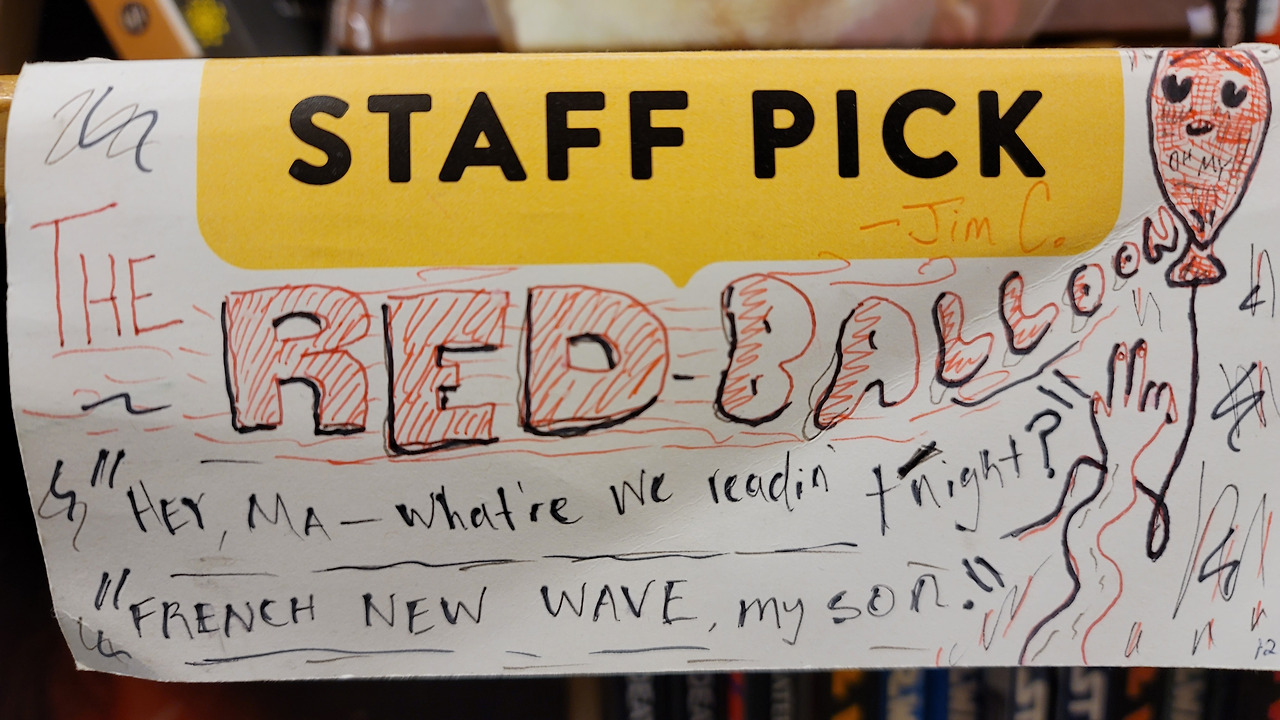 STAFF PICK
-Jim C.
THE
RED-BALLOON
AH MY
"HEY, MA - what're we readin' t'night?"
"FRENCH NEW WAVE, my son."